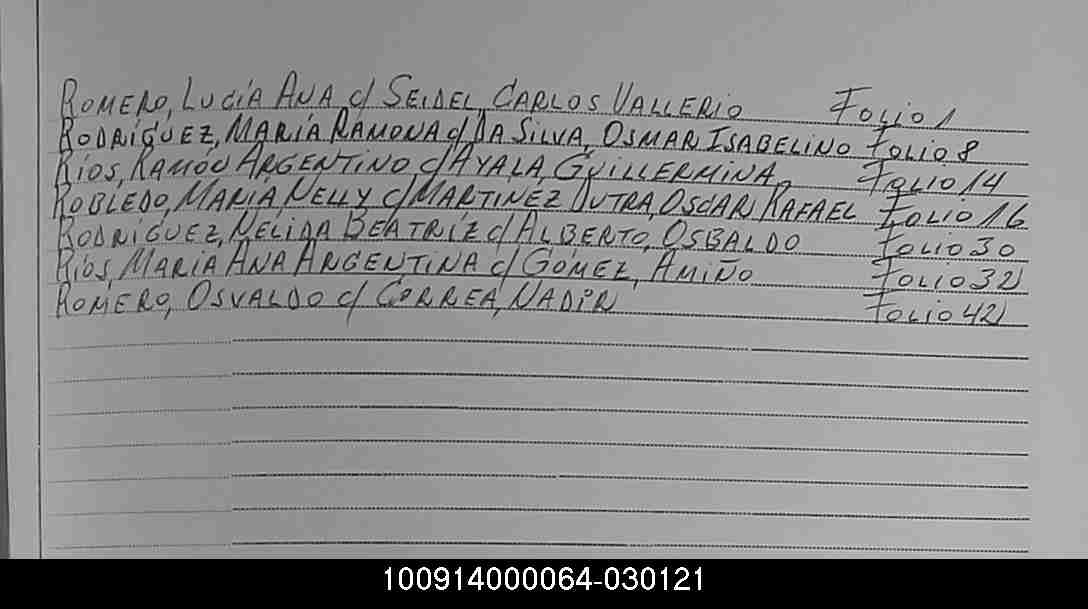 Romero, Lucía Ana c/ Seidel, Carlos Vallerio Folio 1
Rodríguez, María Ramona c/ Da Silva, Osmar Isabelino Folio 8
Ríos, Ramón Argentino c/ Ayala, Guillermina Folio 14
Robledo, María Nelly c/ Martínez Dutra, Oscar Rafael Folio 16
Rodríguez, Nélida Beatríz c/ Alberto, Osbaldo Folio 30
Ríos, María Ana Argentina c/ Gómez, Amiño Folio 32
Romero, Osvaldo c/ Correa, Nadir Folio 42
100914000064-030121